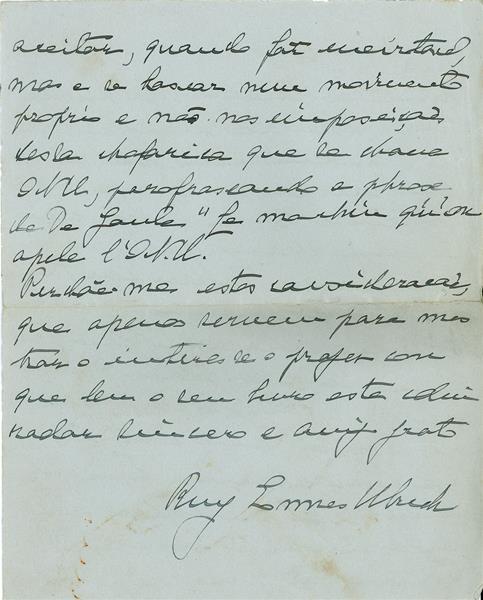 aceitar, quando fôr
mas e se basear num movimento
proprio e não nas imposições
desta que se chama
ONU, parafraseando a phrase
de De Gaule "le machin qu'on
apele l'O.N.U."
Perdôe-me estas considerações,
que apenas servem para mos
trar o interesse e prazer com
que leu o seu livro este admi
rador sincero e amigo grato
Ruy Ennes Ulrich